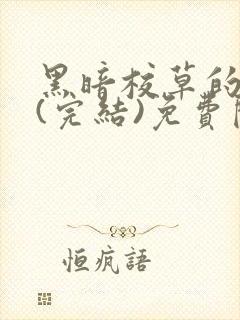 黑暗校草的
(完結)免費
恒瘋語